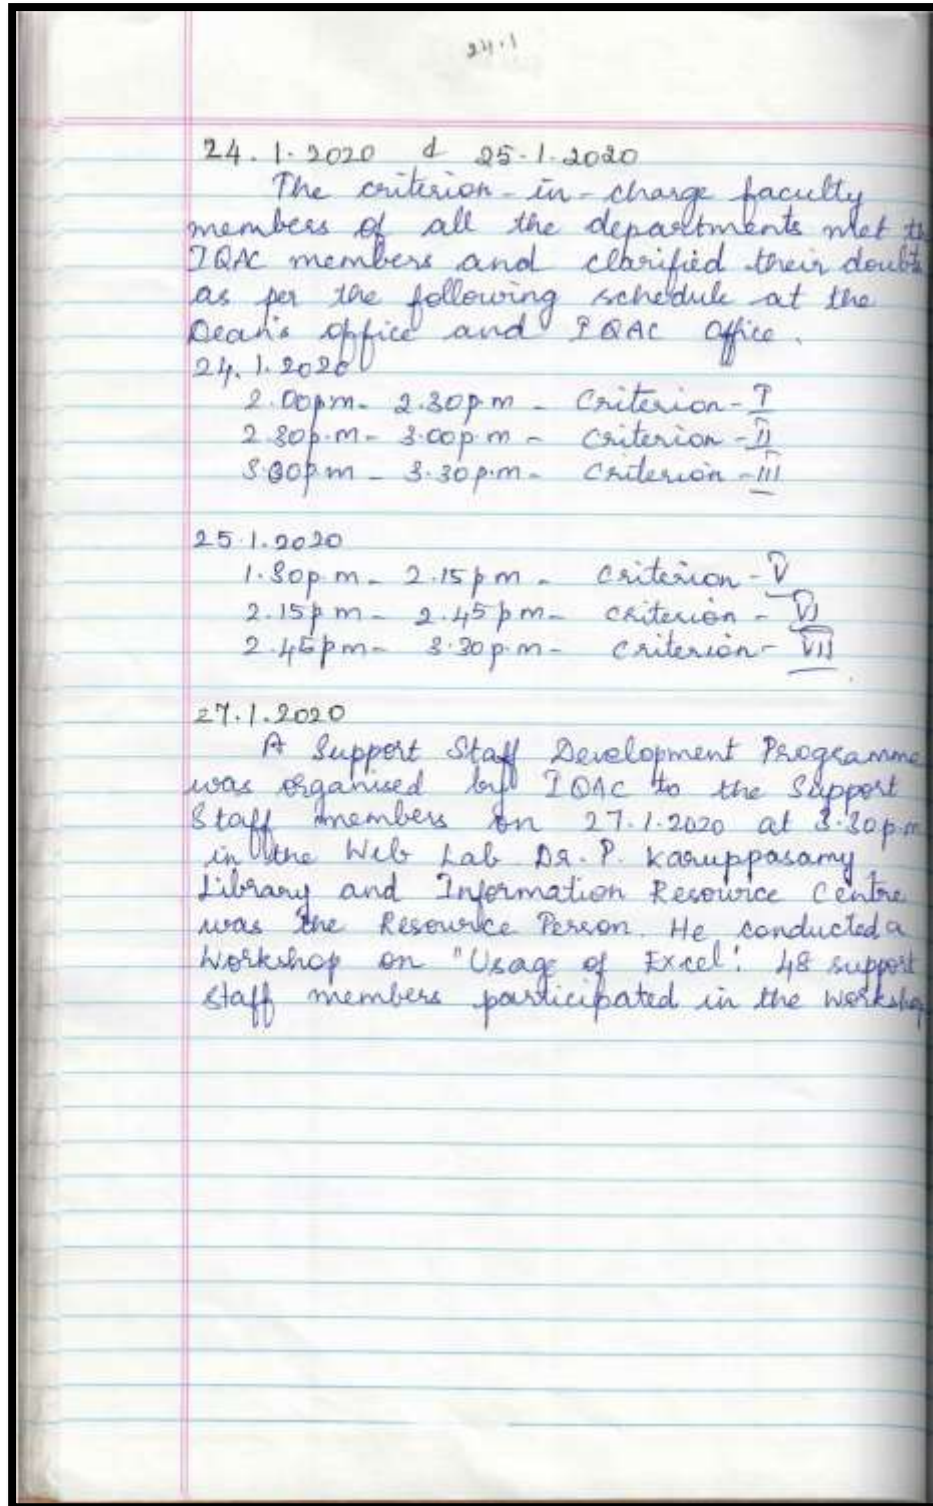 24.1
24.1.2020 & 25.1.2020
The criterion-in-charge faculty
members of all the departments met
IQAC members and clarified their doubts
as per the following schedule at the
Dean's office and IQAC Office.
24.1.2020
2.00pm- 2.30p.m - Criterion-I
2.30p.m- 3.00p.m - Criterion-II
3.00p.m - 3.30p.m- Criterion-III
25.1.2020
1.30p.m- 2.15pm - Criterion-V
2.15pm- 2.45pm- Criterion - VI
2.45pm- 3.30p.m- Criterion- VII
27.1.2020
A Support Staff Development Programme
was organised by IQAC to the Support
Staff members on 27.1.2020 at 3.30p.m
in the Web Lab Dr. P. Karuppasamy,
Library and Information Resource Centre
was the Resource Person. He conducted a
Workshop on "Usage of Excel". 48 support
staff members participated in the workshop